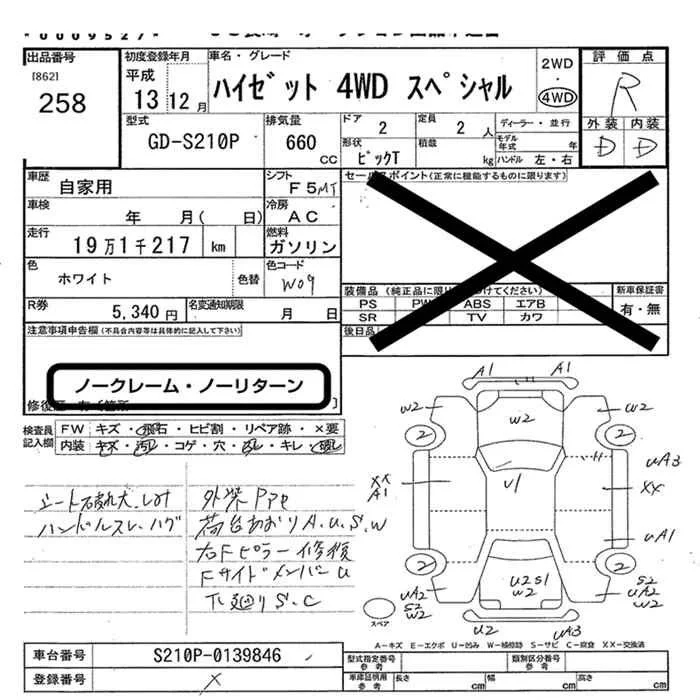 出品番号
[862]
258
初度登録年月
平成
13 12月
車名・グレード
ハイゼット 4WD スペシャル
2WD
・
4WD
評価点
R
外装 内装
D D
型式
GD-S210P
排気量
660
CC
ドア
2
定員
2 人
ディーラー・並行
モデル年式 年
形状
ピックT
積載
kg
ハンドル 左・右
車歴
自家用
シフト
F5MT
セールスポイント(正常に機能するものに限ります)
車検
年 月( 日)
冷房
AC
走行
19万1千217 km
燃料
ガソリン
色
ホワイト
色替
色コード
W09
R券
5,340円
名変通知期限
月 日
装備品
PS PW ABS エアB
SR TV カワ
新車保証書
有・無
後日品
注意事項申告欄(不具合内容等は具体的に記入して下さい)
ノークレーム・ノーリターン
検査員記入欄
FW キズ・飛石・ヒビ割・リペア跡・×要
内装 キズ・汚れ・コゲ・穴・ ・キレ・
シート破れ大、しみ
ハンドルスレ、ハゲ
外装
荷台あおりA.U.S.W
右Fピラー修復
FサイドメンバーU
下廻りS.C
A1 A1
W2 W2 W2
2 2
U1
XX
A1
UA3
XX
UA1
2 2
U2S1
W2
UA2
S2
W2
S2
UA2
W2
U2 UA3
スペア
A-キズ E-エクボ U-凹み W-補修跡 S-サビ C-腐食 XX-交換済
車台番号
S210P-0139846
登録番号
×
型式指定番号
参考
類別区分番号
参考
車庫証明用
参考
長さ cm 幅 cm 高さ cm